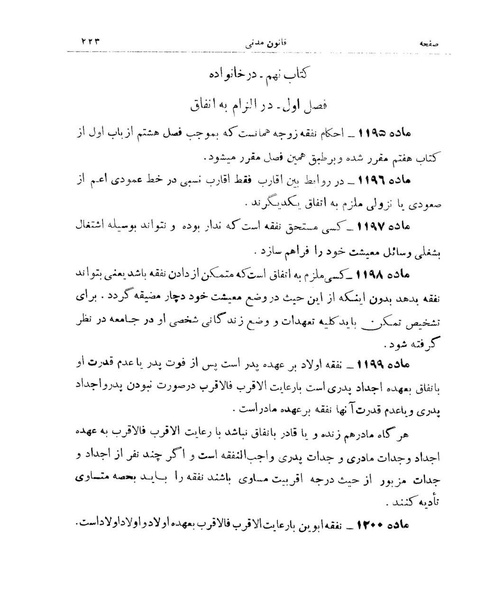 صفحه قانون مدنی ۲۲۳
کتاب نهم ـ در خانواده
فصل اول ـ در الزام به انفاق
ماده ۱۱۹۵ ـ احکام نفقه زوجه همانست که بموجب فصل هشتم از باب اول از
کتاب هفتم مقرر شده و برطبق همین فصل مقرر میشود .
ماده ۱۱۹۶ ـ در روابط بین اقارب فقط اقارب نسبی در خط عمودی اعم از
صعودی یا نزولی ملزم به انفاق یکدیگرند .
ماده ۱۱۹۷ ـ کسی مستحق نفقه است که ندار بوده و نتواند بوسیله اشتغال
بشغلی وسائل معیشت خود را فراهم سازد .
ماده ۱۱۹۸ ـ کسی ملزم به انفاق است که متمکن از دادن نفقه باشد یعنی بتواند
نفقه بدهد بدون اینکه از این حیث در وضع معیشت خود دچار مضیقه گردد . برای
تشخیص تمکن باید کلیه تعهدات و وضع زندگانی شخصی او در جامعه در نظر
گرفته شود .
ماده ۱۱۹۹ ـ نفقه اولاد بر عهده پدر است پس از فوت پدر یا عدم قدرت او
بانفاق بعهده اجداد پدری است بارعایت الاقرب فالاقرب درصورت نبودن پدر و اجداد
پدری و یا عدم قدرت آنها نفقه بر عهده مادر است .
هر گاه مادر هم زنده و یا قادر بانفاق نباشد با رعایت الاقرب فالاقرب به عهده
اجداد وجدات مادری و جدات پدری واجب النفقه است و اگر چند نفر از اجداد و
جدات مزبور از حیث درجه اقربیت مساوی باشند نفقه را باید بحصه متساوی
تأدیه کنند .
ماده ۱۲۰۰ ـ نفقه ابوین بارعایت الاقرب فالاقرب بعهده اولاد و اولاد اولاد است.